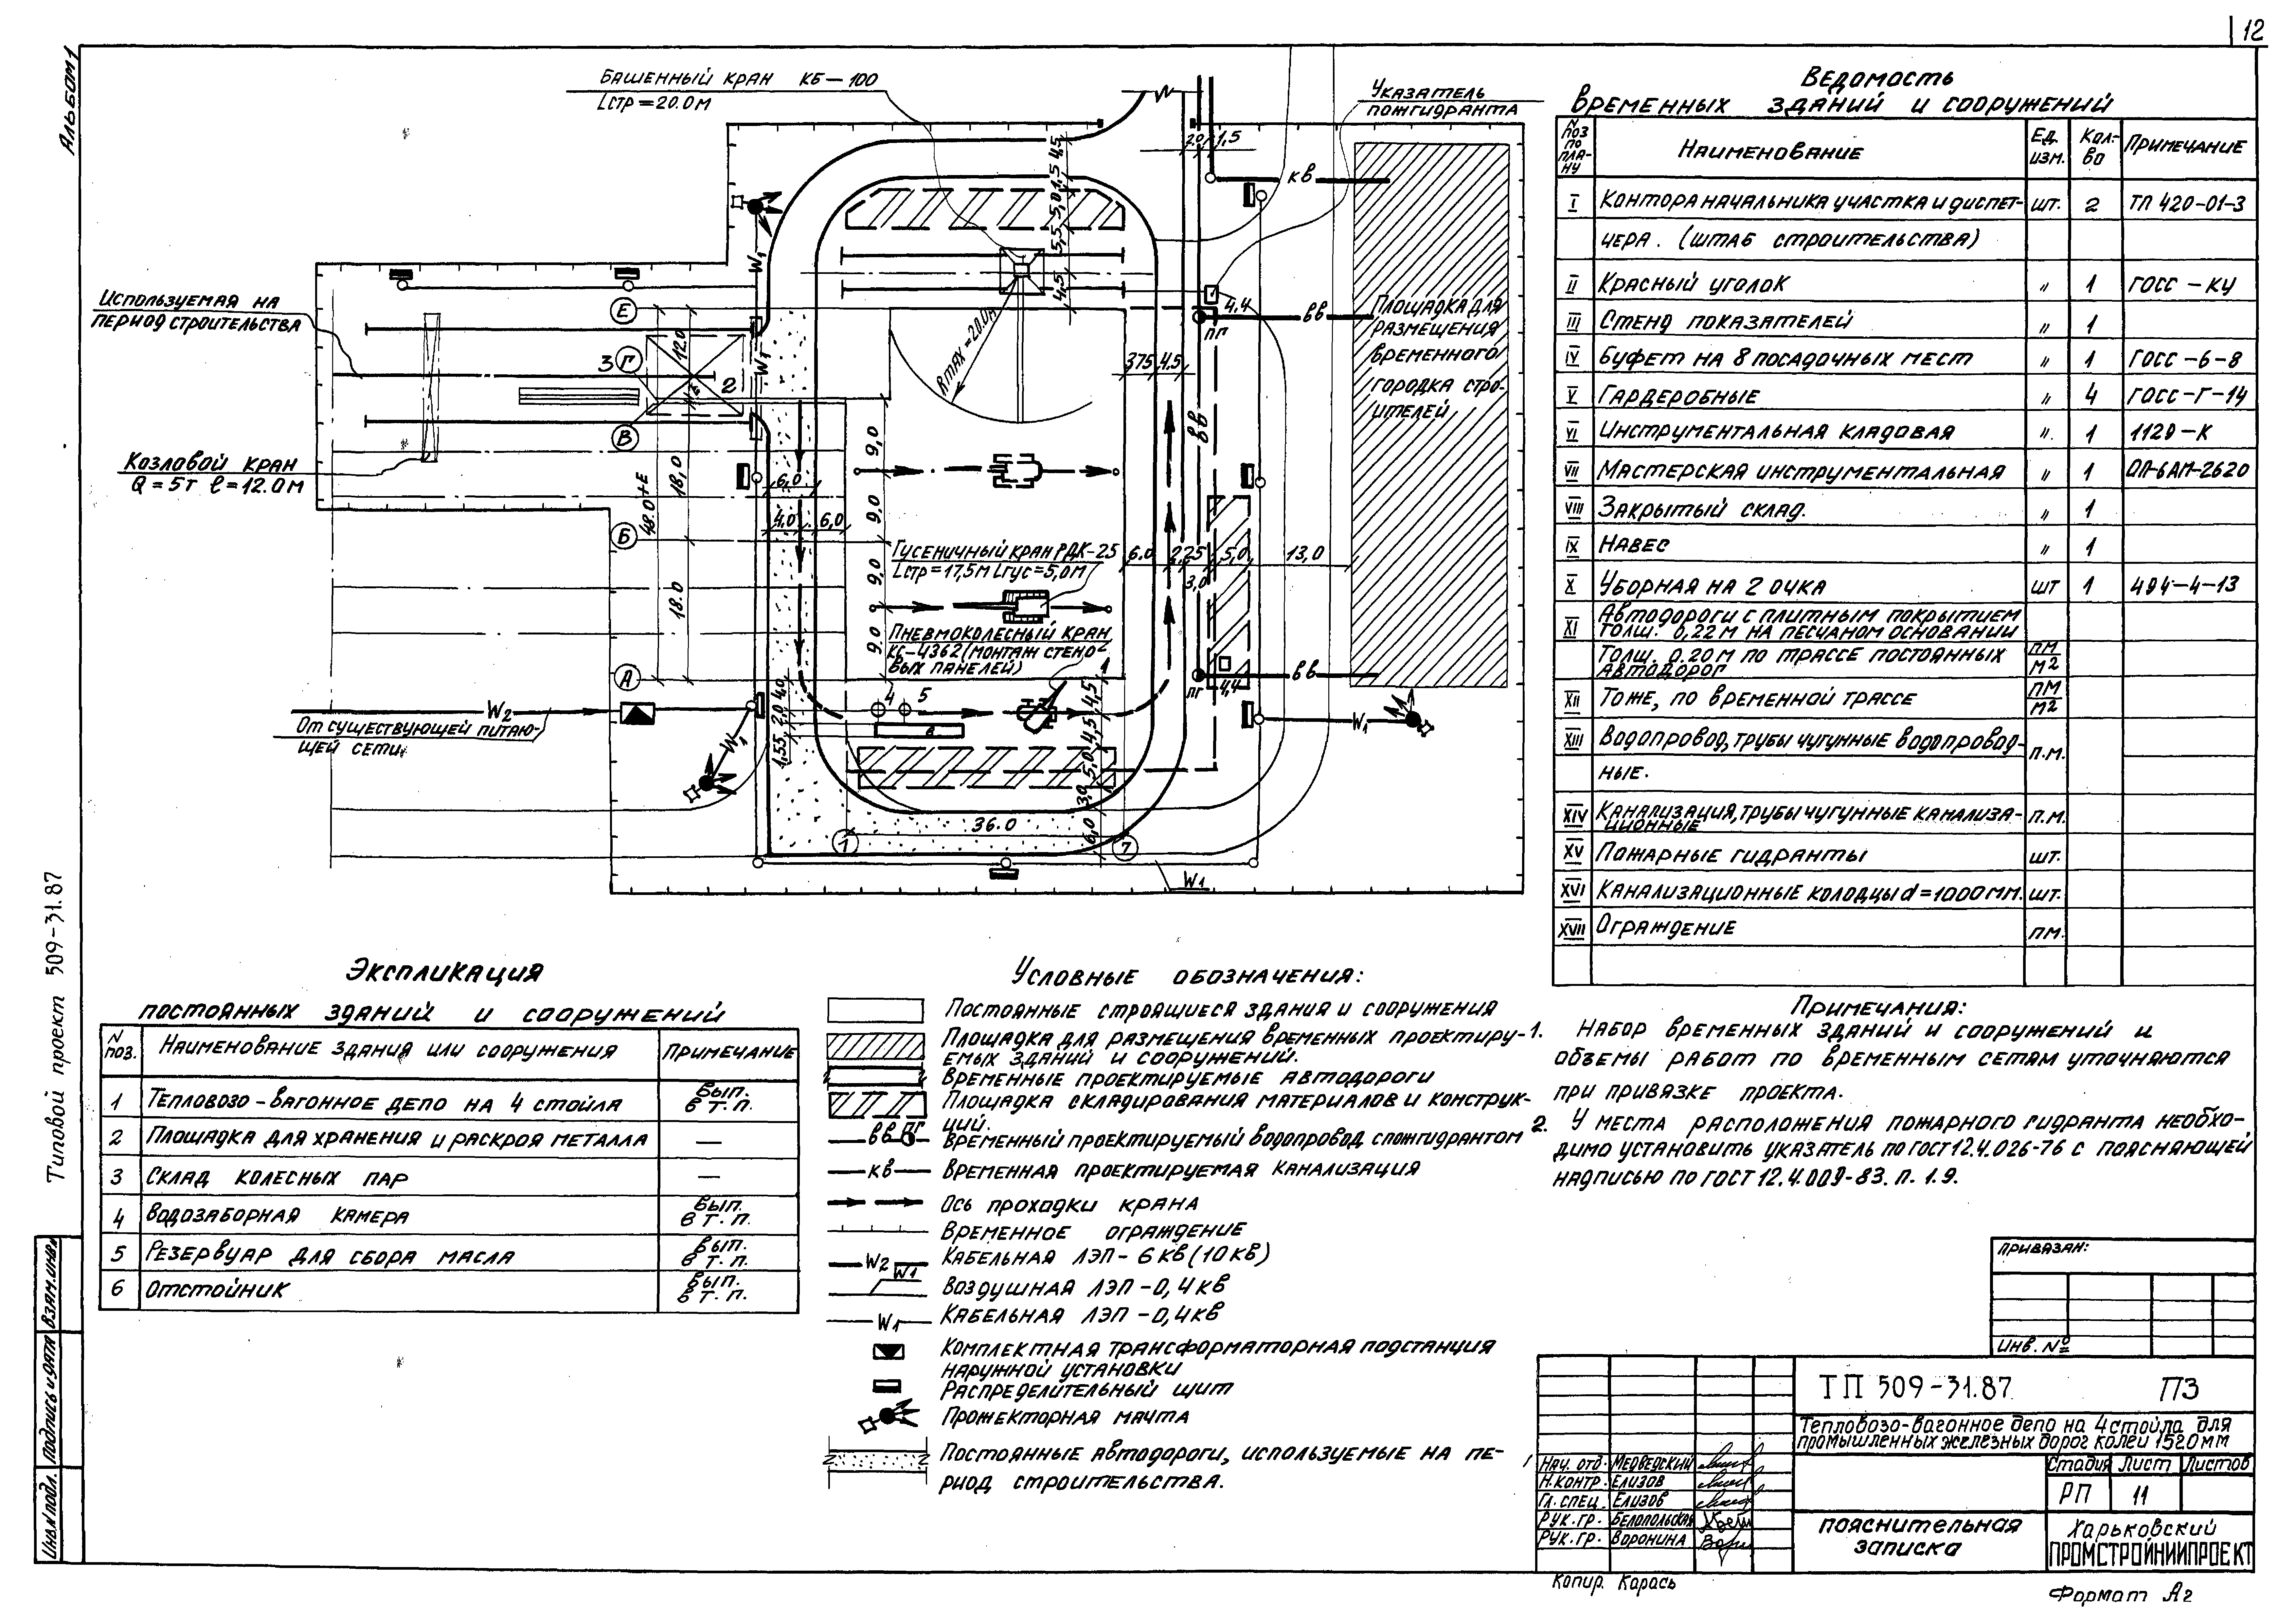 12
Альбом 1
Типовой проект 509-31.87
Башенный кран КБ-100
Lстр=20.0м
Указатель
пожгидранта
Используемая на
период строительства
Козловой кран
Q=5т ℓ=12.0м
Rмах=20.0м
Площадка для
размещения
временного
городка стро-
ителей
Гусеничный кран РДК-25
Lстр=17,5м Lгус=5,0м
Пневмоколесный кран
КС-4362 (монтаж стено-
вых панелей)
От существующей питаю-
щей сети
W2
W1
W1
W1
W1
W1
кв
вв
вв
вв
ПГ
ПГ
Е
Г
В
Б
А
1
7
2
3
4
5
12.0
18,0
18.0
48.0+Е
36.0
9,0
9,0
9,0
6,0
4,0
6,0
375
4.5
6.0
2,25
5,0
13,0
3,0
4.4
4,4
2.0
1,5
Ведомость
временных зданий и сооружений
N поз по пла-ну
Наименование
Ед. изм.
Кол-во
Примечание
I Контора начальника участка и диспет- шт. 2 ТП 420-01-3
чера. (штаб строительства)
II Красный уголок " 1 ГОСС-КУ
III Стенд показателей " 1
IV Буфет на 8 посадочных мест " 1 ГОСС-6-8
V Гардеробные " 4 ГОСС-Г-14
VI Инструментальная кладовая " 1 1129-К
VII Мастерская инструментальная " 1
VIII Закрытый склад. " 1
IX Навес " 1
X Уборная на 2 очка шт 1 494-4-13
XI Автодороги с плитным покрытием
толщ. 0,22 м на песчаном основании
Толщ. 0.20м по трассе постоянных пм
автодорог м2
XII Тоже, по временной трассе пм м2
XIII Водопровод, трубы чугунные водопровод- п.м.
ные.
XIV Канализация, трубы чугунные канализа- п.м.
ционные
XV Пожарные гидранты шт.
XVI Канализационные колодцы d=1000мм. шт.
XVII Ограждение пм.
Экспликация
постоянных зданий и сооружений
N поз. Наименование здания или сооружения Примечание
1 Тепловозо-вагонное депо на 4 стойла Вып. в т.п.
2 Площадка для хранения и раскроя металла —
3 Склад колесных пар —
4 Водозаборная камера Вып. в т.п.
5 Резервуар для сбора масла Вып. в т.п.
6 Отстойник Вып. в т.п.
Условные обозначения:
Постоянные строящиеся здания и сооружения
Площадка для размещения временных проектиру-
емых зданий и сооружений.
Временные проектируемые автодороги
Площадка складирования материалов и конструк-
ций.
вв ПГ Временный проектируемый водопровод с пожгидрантом
кв Временная проектируемая канализация
Ось проходки крана
Временное ограждение
W2 Кабельная ЛЭП-6кв (10кв)
W1 Воздушная ЛЭП-0,4кв
W1 Кабельная ЛЭП-0,4кв
Комплектная трансформаторная подстанция
наружной установки
Распределительный щит
Прожекторная мачта
Постоянные автодороги, используемые на пе-
риод строительства.
Примечания:
1. Набор временных зданий и сооружений и
объемы работ по временным сетям уточняются
при привязке проекта.
2. У места расположения пожарного гидранта необхо-
димо установить указатель по ГОСТ 12.4.026-76 с поясняющей
надписью по ГОСТ 12.4.009-83. п. 1.9.
Привязан:
Инв. №
ТП 509-31.87 ПЗ
Тепловозо-вагонное депо на 4 стойла для
промышленных железных дорог колеи 1520мм
Нач. отд. Медведский
Н.контр. Елизов
Гл. спец. Елизов
Рук. гр. Белопольская
Рук. гр. Воронина
Стадия Лист Листов
РП 11
пояснительная
записка
Харьковский
ПРОМСТРОЙНИИПРОЕКТ
Копир. Карась
Формат А2
Инв.N подл. Подпись и дата Взам.инв.